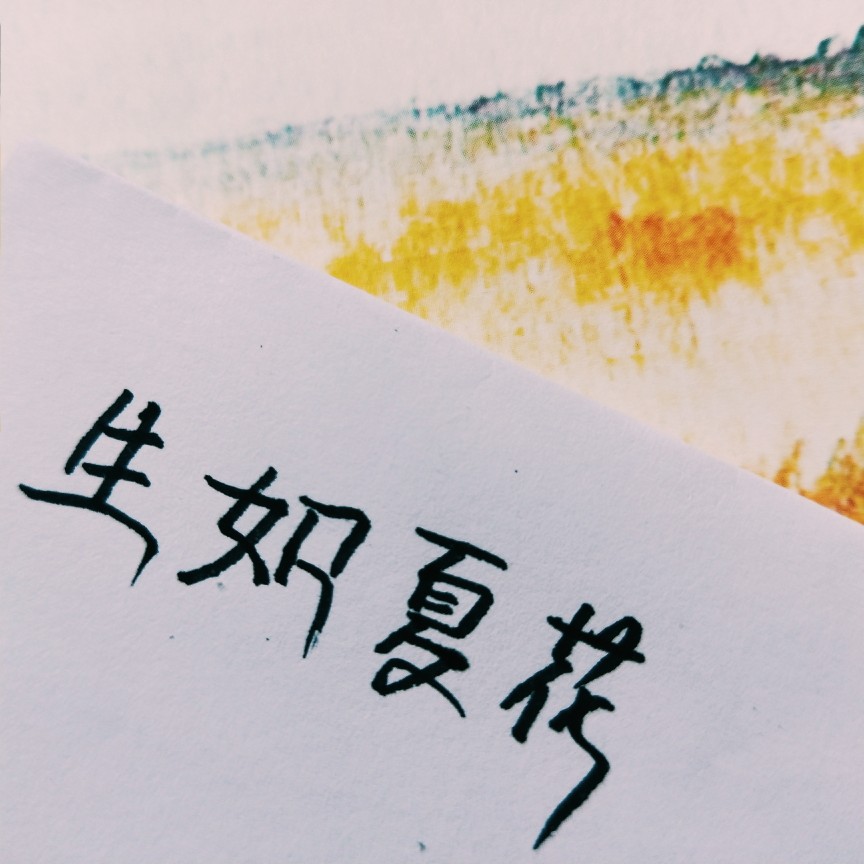 生如夏花